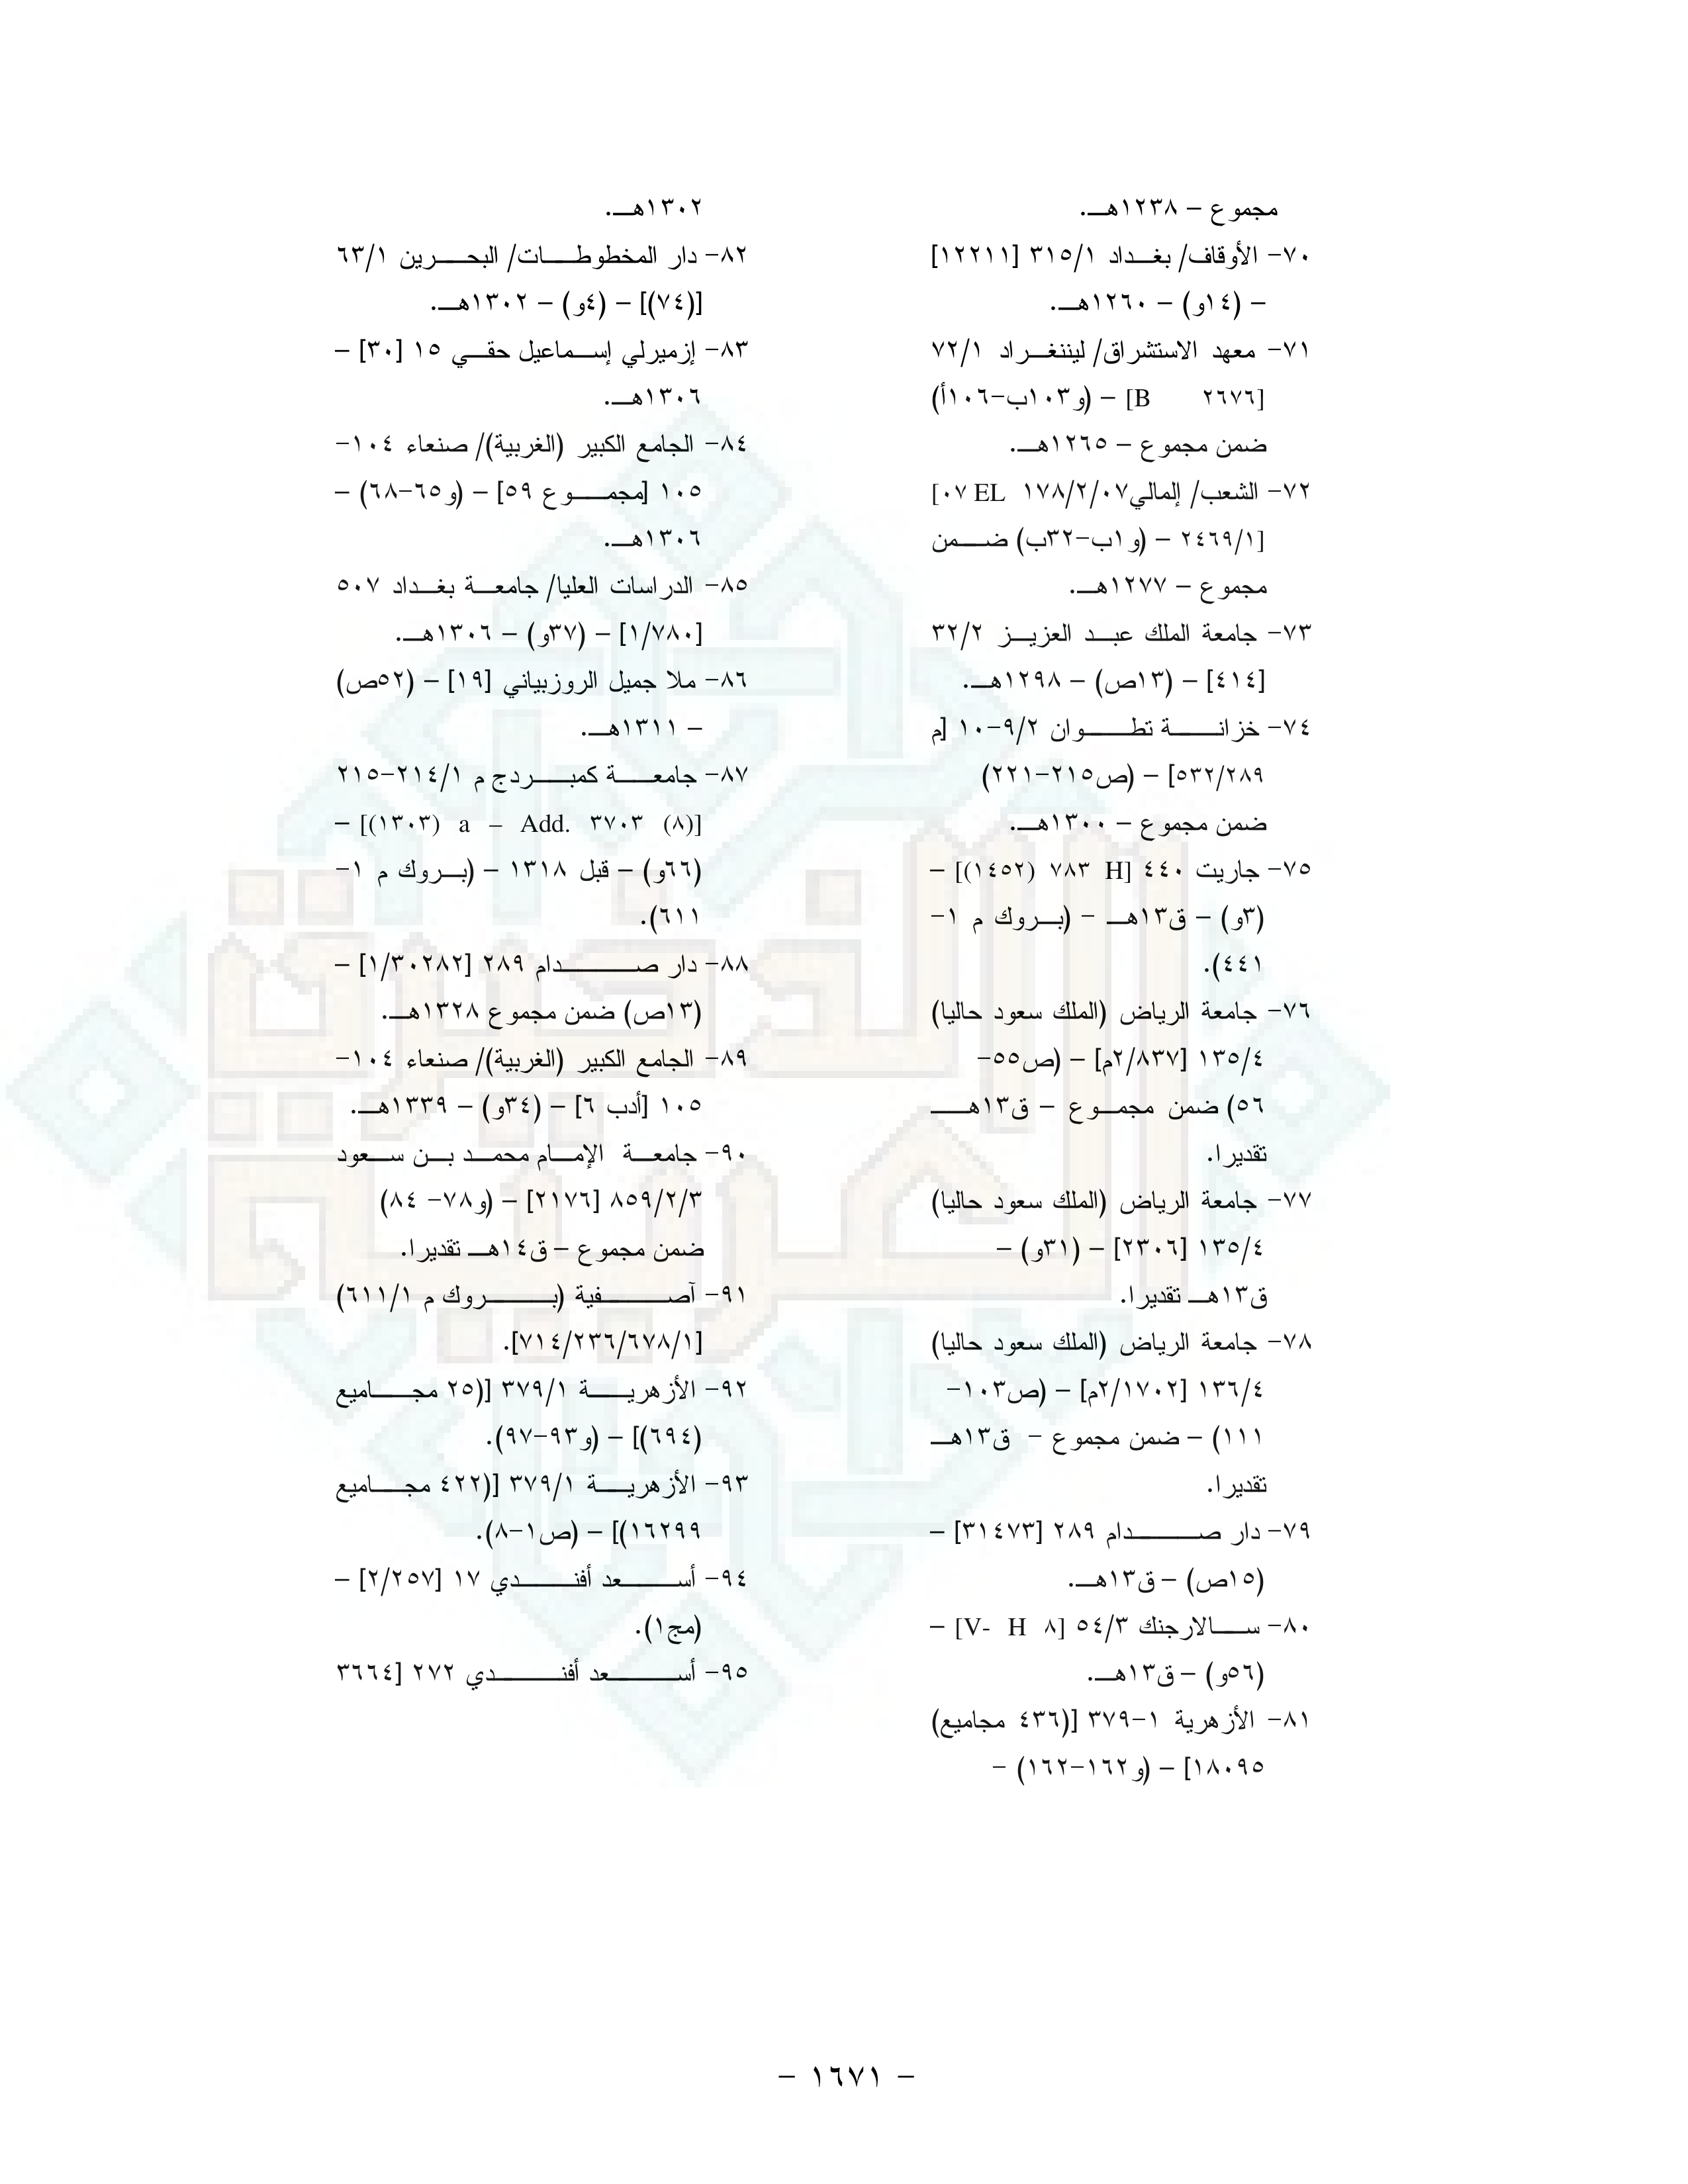 مجموع – ١٢٣٨هـ.
٧٠- الأوقاف/ بغداد ٣١٥/١ [١٢٢١١]
– (١٤و) – ١٢٦٠هـ.
٧١- معهد الاستشراق/ ليننغراد ٧٢/١
[B ٢٦٧٦] – (و١٠٣ب-١٠٦أ)
ضمن مجموع – ١٢٦٥هـ.
٧٢- الشعب/ إلمالي١٧٨/٢/٠٧ [٠٧ EL
٢٤٦٩/١] – (و١ب-٣٢ب) ضمن
مجموع – ١٢٧٧هـ.
٧٣- جامعة الملك عبد العزيز ٣٢/٢
[٤١٤] – (١٣ص) – ١٢٩٨هـ.
٧٤- خزانة تطوان ٩/٢-١٠ [م
٥٣٢/٢٨٩] – (ص٢١٥-٢٢١)
ضمن مجموع – ١٣٠٠هـ.
٧٥- جاريت ٤٤٠ [H ٧٨٣ (١٤٥٢)] –
(٣و) – ق١٣هـ - (بروك م ١-
٤٤١).
٧٦- جامعة الرياض (الملك سعود حاليا)
١٣٥/٤ [٢/٨٣٧م] – (ص٥٥-
٥٦) ضمن مجموع – ق١٣هـ
تقديرا.
٧٧- جامعة الرياض (الملك سعود حاليا)
١٣٥/٤ [٢٣٠٦] – (٣١و) –
ق١٣هـ تقديرا.
٧٨- جامعة الرياض (الملك سعود حاليا)
١٣٦/٤ [٢/١٧٠٢م] – (ص١٠٣-
١١١) – ضمن مجموع - ق١٣هـ
تقديرا.
٧٩- دار صدام ٢٨٩ [٣١٤٧٣] –
(١٥ص) – ق١٣هـ.
٨٠- سالارجنك ٥٤/٣ [V- H ٨] –
(٥٦و) – ق١٣هـ.
٨١- الأزهرية ١-٣٧٩ [(٤٣٦ مجاميع)
١٨٠٩٥] – (و١٦٢-١٦٢) -
١٣٠٢هـ.
٨٢- دار المخطوطات/ البحرين ٦٣/١
[(٧٤)] – (٤و) – ١٣٠٢هـ.
٨٣- إزميرلي إسماعيل حقي ١٥ [٣٠] –
١٣٠٦هـ.
٨٤- الجامع الكبير (الغربية)/ صنعاء ١٠٤-
١٠٥ [مجموع ٥٩] – (و٦٥-٦٨) –
١٣٠٦هـ.
٨٥- الدراسات العليا/ جامعة بغداد ٥٠٧
[١/٧٨٠] – (٣٧و) – ١٣٠٦هـ.
٨٦- ملا جميل الروزبياني [١٩] – (٥٢ص)
– ١٣١١هـ.
٨٧- جامعة كمبردج م ٢١٤/١-٢١٥
[(٨) ٣٧٠٣ .a – Add (١٣٠٣)] –
(٦٦و) – قبل ١٣١٨ – (بروك م ١-
٦١١).
٨٨- دار صدام ٢٨٩ [١/٣٠٢٨٢] –
(١٣ص) ضمن مجموع ١٣٢٨هـ.
٨٩- الجامع الكبير (الغربية)/ صنعاء ١٠٤-
١٠٥ [أدب ٦] – (٣٤و) – ١٣٣٩هـ.
٩٠- جامعة الإمام محمد بن سعود
٨٥٩/٢/٣ [٢١٧٦] – (و٧٨- ٨٤)
ضمن مجموع – ق١٤هـ تقديرا.
٩١- آصفية (بروك م ٦١١/١)
[٧١٤/٢٣٦/٦٧٨/١].
٩٢- الأزهرية ٣٧٩/١ [(٢٥ مجاميع
(٦٩٤)] – (و٩٣-٩٧).
٩٣- الأزهرية ٣٧٩/١ [(٤٢٢ مجاميع
١٦٢٩٩)] – (ص١-٨).
٩٤- أسعد أفندي ١٧ [٢/٢٥٧] –
(مج١).
٩٥- أسعد أفندي ٢٧٢ [٣٦٦٤
- ١٦٧١ -